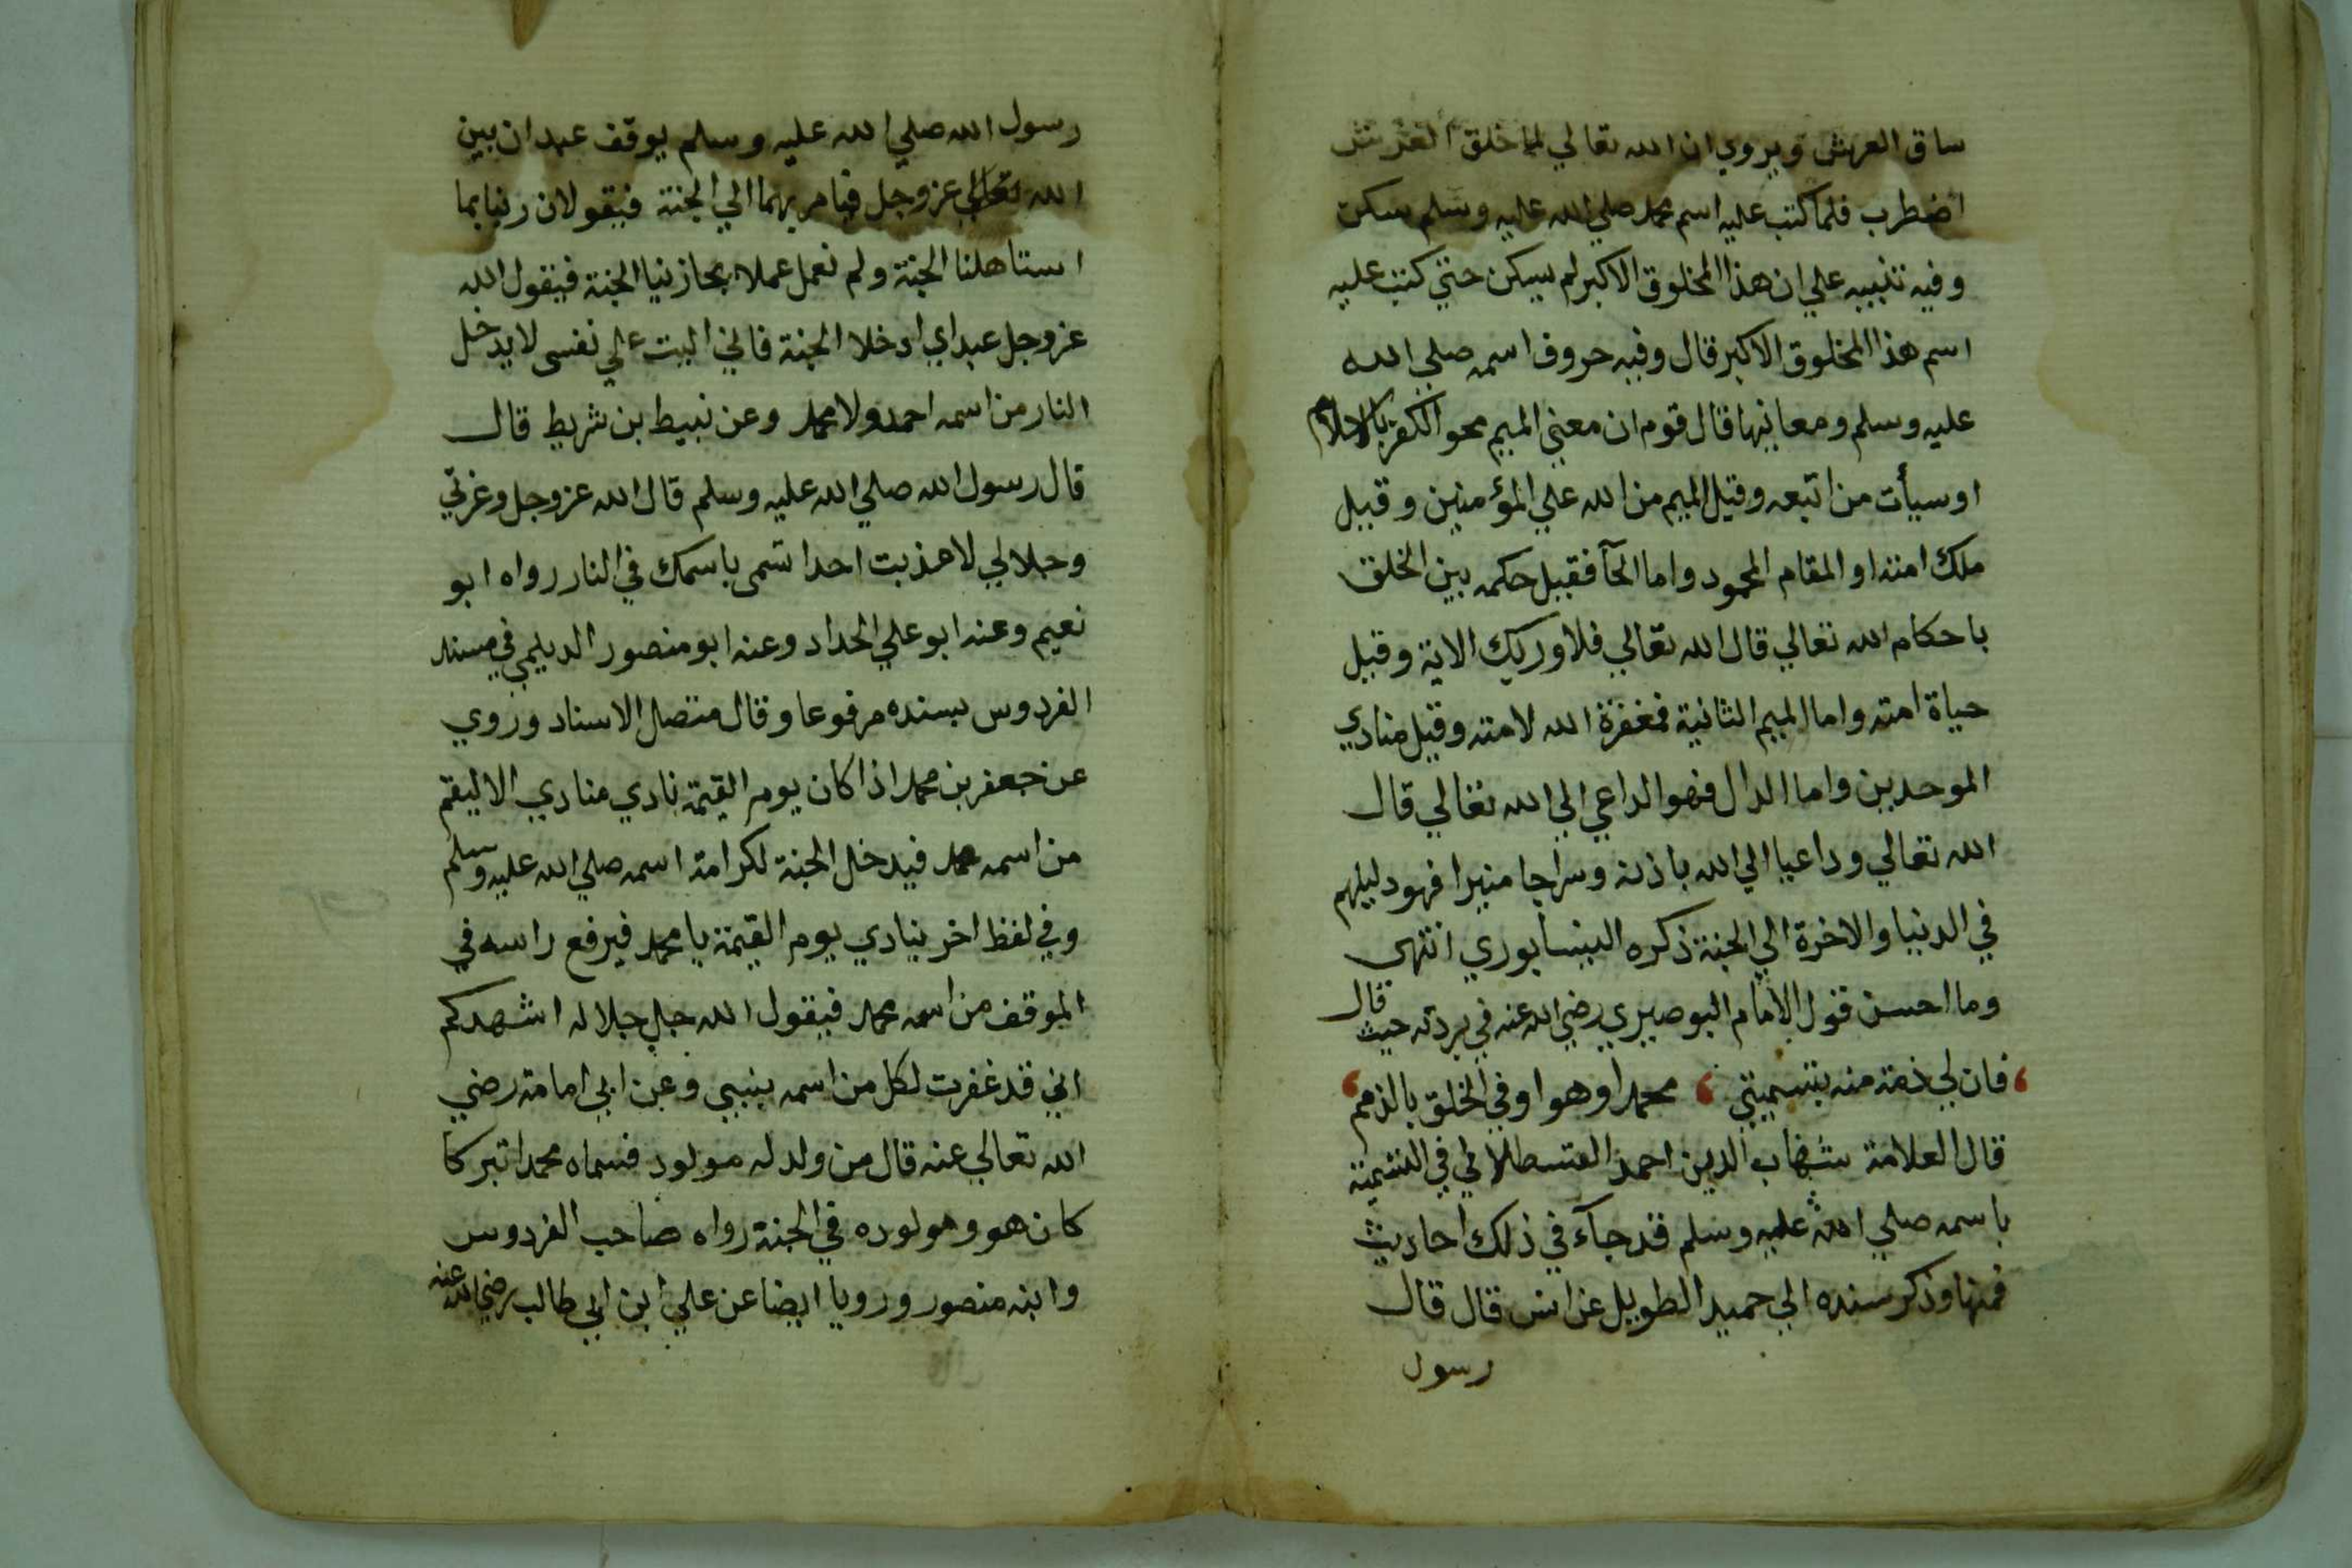 ساق العرش ويروي ان الله تعالي لما خلق العرش
اضطرب فلما كتب عليه اسم محمد صلي الله عليه وسلم سكن
وفيه تنبيه علي ان هذا المخلوق الاكبر لم يسكن حتي كتب عليه
اسم هذا المخلوق الاكبر قال وفيه حروف اسمه صلي الله
عليه وسلم ومعانيها قال قوم ان معني الميم محو الكفر بالاسلام
او سيأت من اتبعه وقيل الميم من الله علي المؤمنين وقيل
ملك امته او المقام المحمود واما الحآ فقيل حكمه بين الخلق
باحكام الله تعالي قال الله تعالي فلا وربك الاية وقيل
حياة امته واما الميم الثانية فمغفرة الله لامته وقيل منادي
الموحدين واما الدال فهو الداعي الي الله تعالي قال
الله تعالي وداعيا الي الله باذنه وسراجا منيرا فهو دليلهم
في الدنيا والاخرة الي الجنة ذكره النيسابوري انتهى
وما احسن قول الامام البوصيري رضي الله عنه في بردته حيث قال
فان لي ذمة منه بتسميتي ، محمدا وهو اوفي الخلق بالذمم
قال العلامة شهاب الدين احمد القسطلاني في التسمية
باسمه صلي الله عليه وسلم قد جآء في ذلك احاديث
فمنها وذكر سنده الي حميد الطويل عن انس قال قال
رسول
رسول الله صلي الله عليه وسلم يوقف عبدان بين
الله تعالي عز وجل فيامر بهما الي الجنة فيقولان ربنا بما
استاهلنا الجنة ولم نعمل عملا تجازنيا الجنة فيقول الله
عز وجل عبداي ادخلا الجنة فاني اليت علي نفسى لا يدخل
النار من اسمه احمد ولا محمد وعن نبيط بن شريط قال
قال رسول الله صلي الله عليه وسلم قال الله عز وجل وعزتي
وجلالي لا عذبت احدا تسمى باسمك في النار رواه ابو
نعيم وعنه ابو علي الحداد وعنه ابو منصور الديلمي في مسند
الفردوس بسنده مرفوعا وقال متصل الاسناد وروي
عن جعفر بن محمد اذا كان يوم القيمة نادي منادي الا ليقم
من اسمه محمد فيدخل الجنة لكرامة اسمه صلي الله عليه وسلم
وفي لفظ اخر ينادي يوم القيمة يا محمد فيرفع راسه في
الموقف من اسمه محمد فيقول الله جل جلاله اشهدكم
اني قد غفرت لكل من اسمه بنبيي وعن ابي امامة رضي
الله تعالي عنه قال من ولد له مولود فسماه محمدا تبركا
كان هو ومولوده في الجنة رواه صاحب الفردوس
وابنه منصور ورويا ايضا عن علي ابن ابي طالب رضي الله عنه